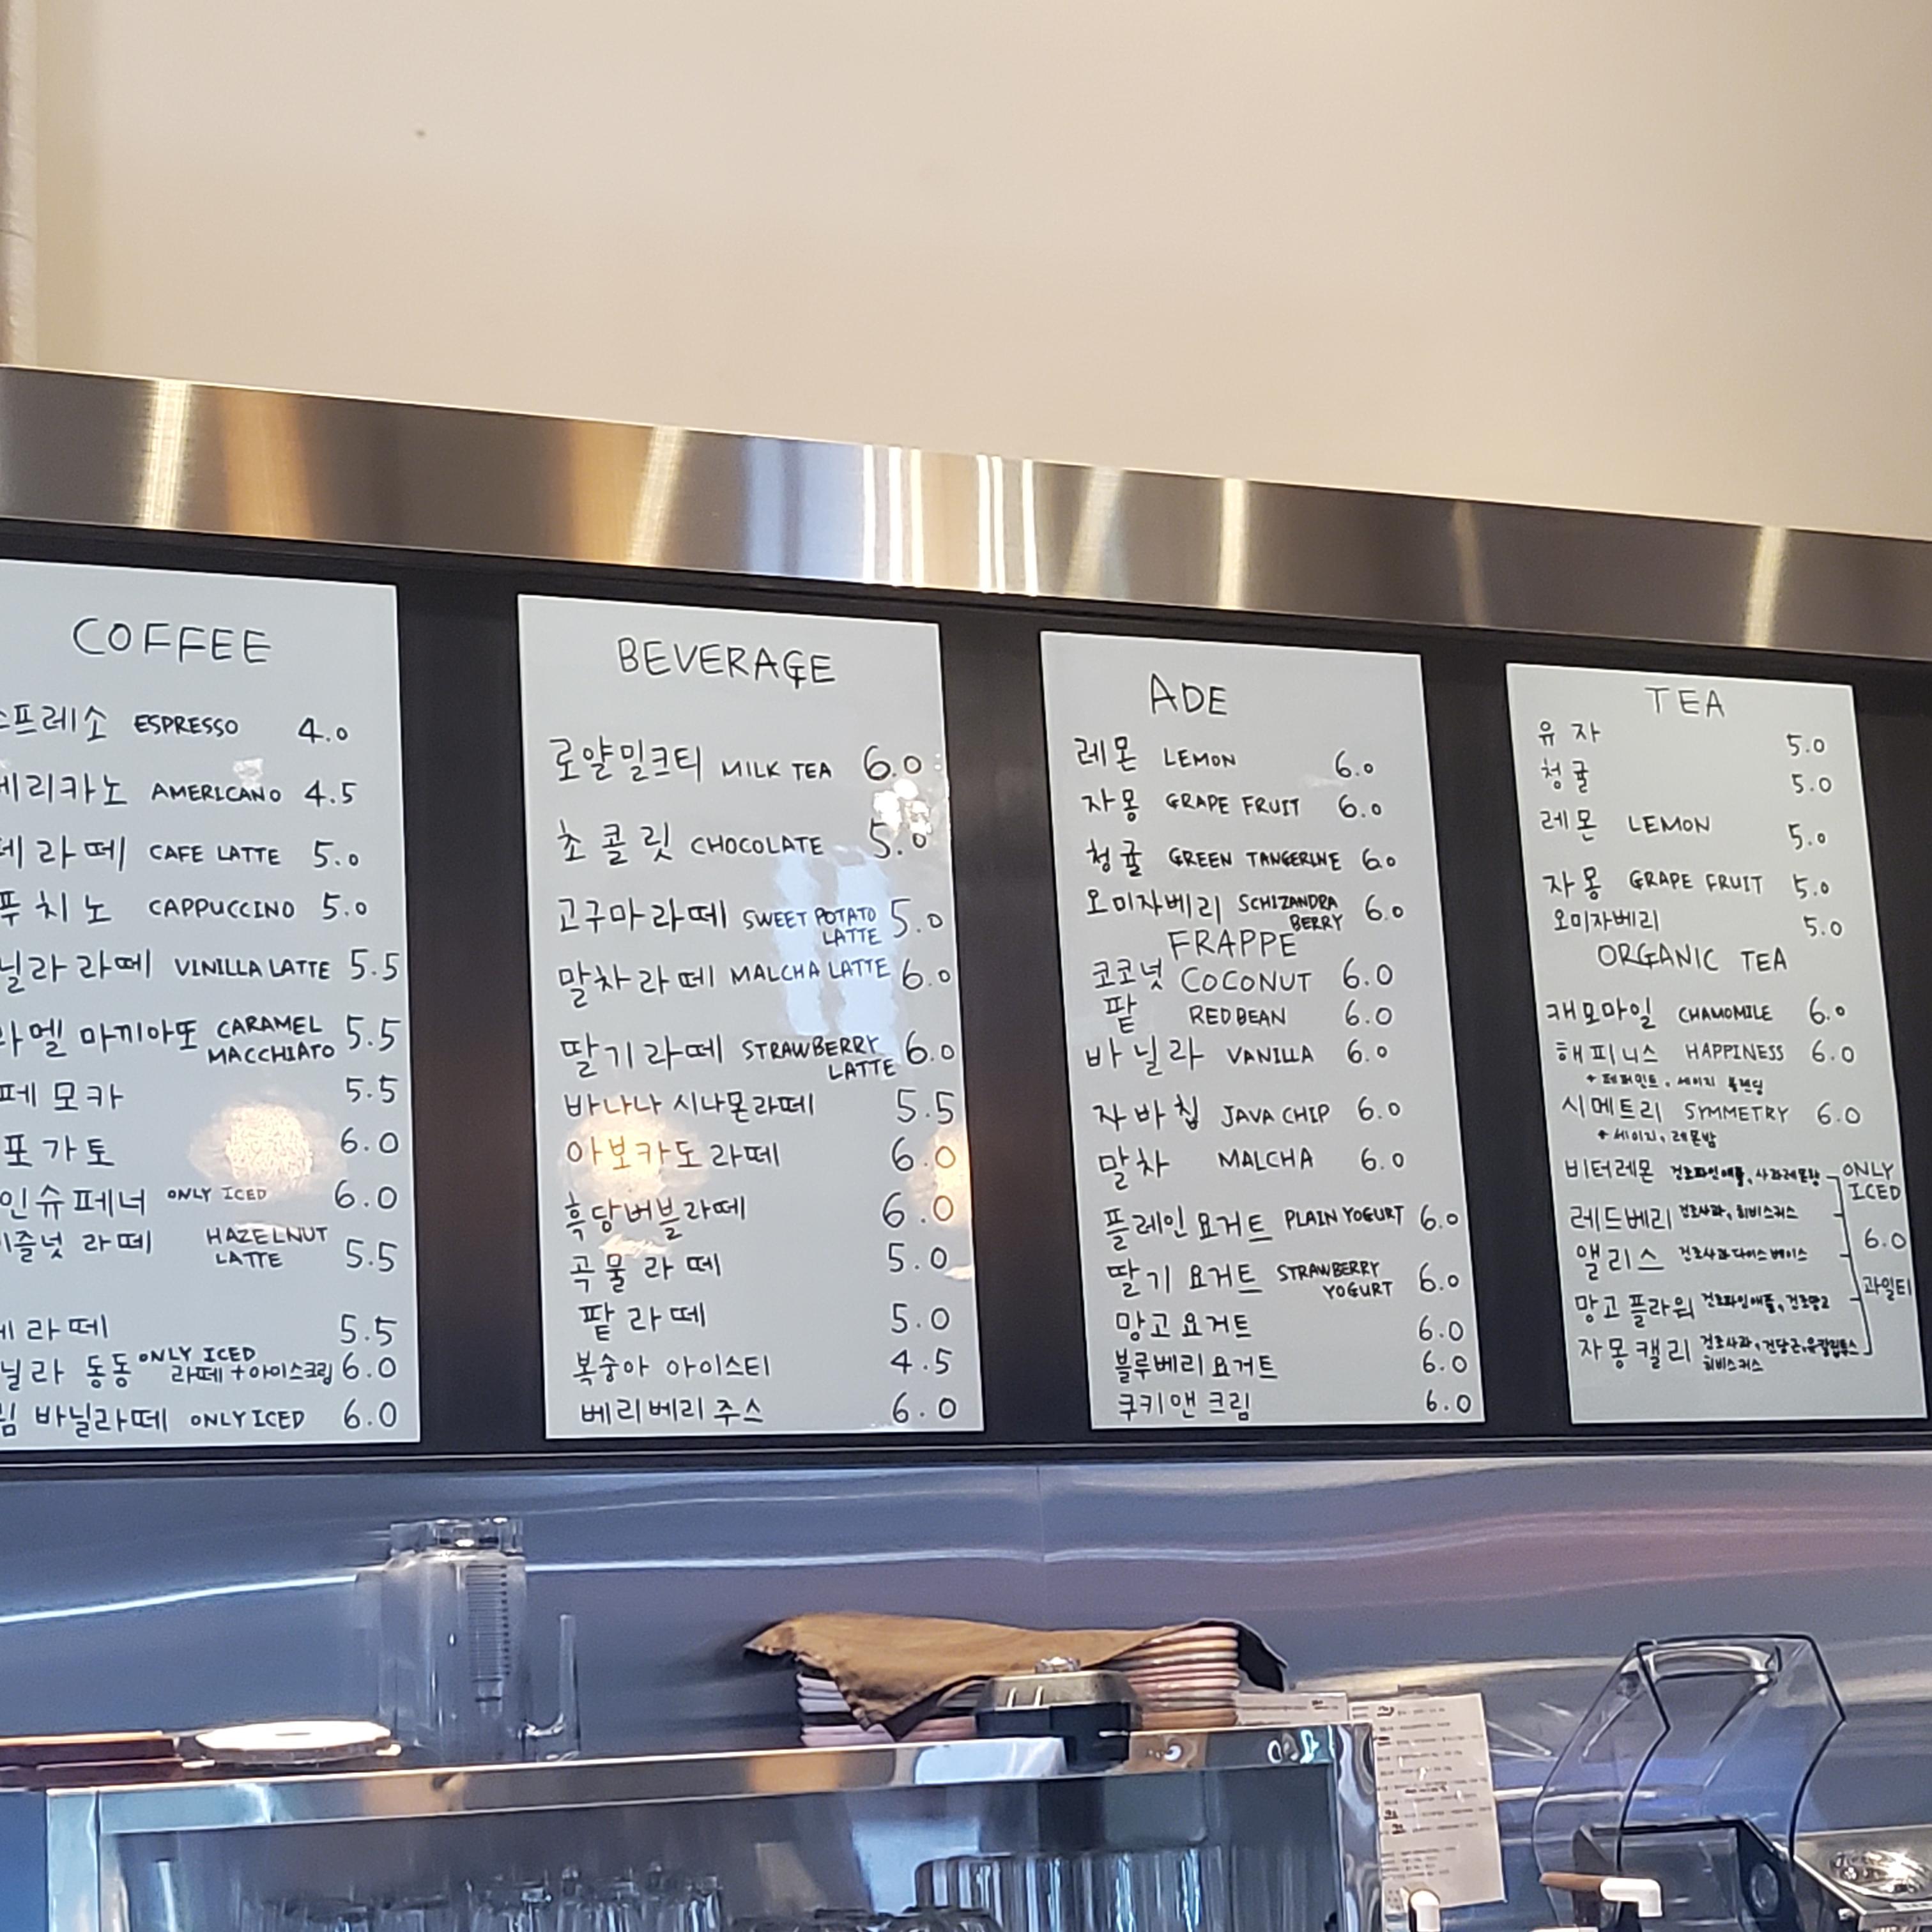 COFFEE
프레소 ESPRESSO 4.0
메리카노 AMERICANO 4.5
페라떼 CAFE LATTE 5.0
푸치노 CAPPUCCINO 5.0
닐라라떼 VINILLA LATTE 5.5
라멜 마끼아또 CARAMEL MACCHIATO 5.5
페모카 5.5
포가토 6.0
인슈페너 ONLY ICED 6.0
이즐넛 라떼 HAZELNUT LATTE 5.5
라떼 5.5
닐라 동동 ONLY ICED 라떼+아이스크림 6.0
림 바닐라떼 ONLY ICED 6.0
BEVERAGE
로얄밀크티 MILK TEA 6.0
초콜릿 CHOCOLATE 5.0
고구마라떼 SWEET POTATO LATTE 5.0
말차라떼 MALCHA LATTE 6.0
딸기라떼 STRAWBERRY LATTE 6.0
바나나 시나몬라떼 5.5
아보카도라떼 6.0
흑당버블라떼 6.0
곡물라떼 5.0
팥라떼 5.0
복숭아 아이스티 4.5
베리베리주스 6.0
ADE
레몬 LEMON 6.0
자몽 GRAPE FRUIT 6.0
청귤 GREEN TANGERINE 6.0
오미자베리 SCHIZANDRA BERRY 6.0
FRAPPE
코코넛 COCONUT 6.0
팥 REDBEAN 6.0
바닐라 VANILLA 6.0
자바칩 JAVA CHIP 6.0
말차 MALCHA 6.0
플레인요거트 PLAIN YOGURT 6.0
딸기요거트 STRAWBERRY YOGURT 6.0
망고요거트 6.0
블루베리요거트 6.0
쿠키앤크림 6.0
TEA
유자 5.0
청귤 5.0
레몬 LEMON 5.0
자몽 GRAPE FRUIT 5.0
오미자베리 5.0
ORGANIC TEA
캐모마일 CHAMOMILE 6.0
해피니스 HAPPINESS 6.0
+ 페퍼민트, 세이지 블렌딩
시메트리 SYMMETRY 6.0
+ 세이지, 레몬밤
비터레몬 건조파인애플, 사과레몬향
레드베리 건조사과, 히비스커스
앨리스 건조사과다이스베이스
망고플라워 건조파인애플, 건조망고
자몽캘리 건조사과, 건당근, 유칼립투스
히비스커스
ONLY ICED
6.0
과일티